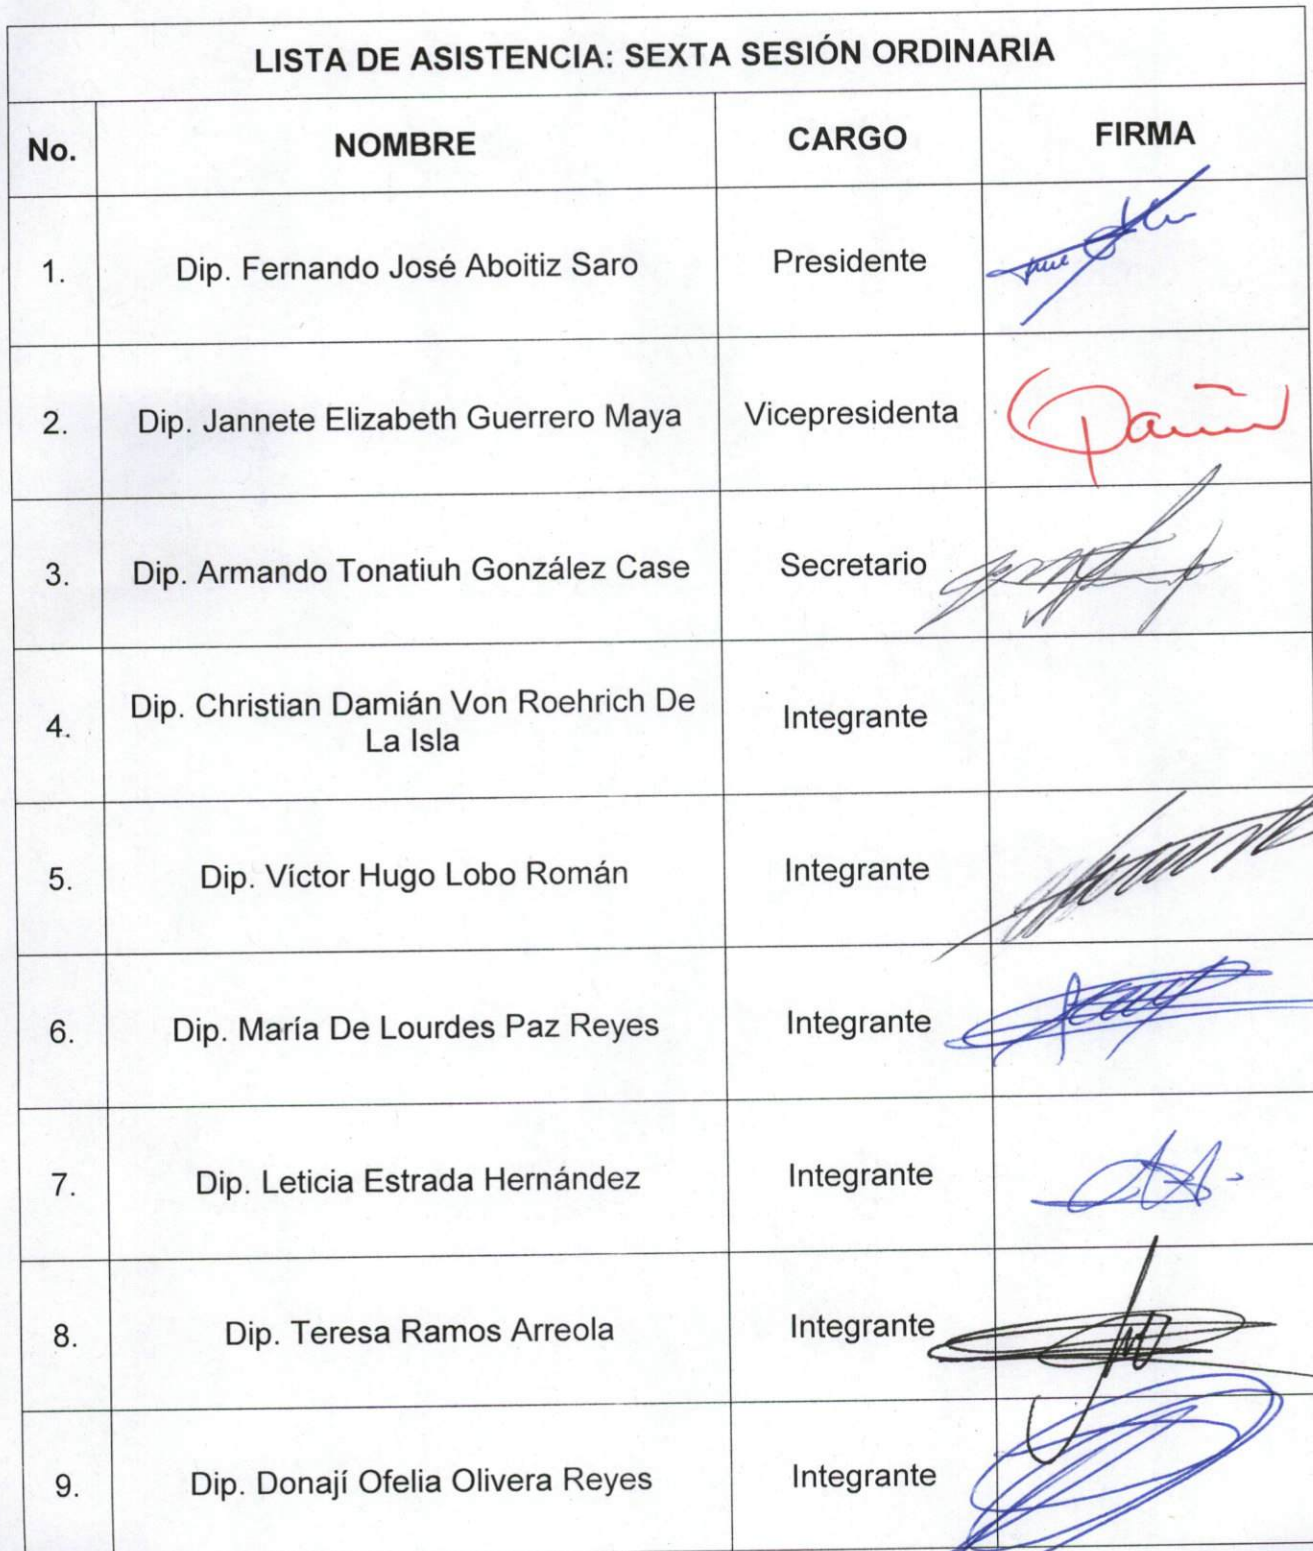 LISTA DE ASISTENCIA: SEXTA SESIÓN ORDINARIA
No. NOMBRE CARGO FIRMA
1. Dip. Fernando José Aboitiz Saro Presidente
2. Dip. Jannete Elizabeth Guerrero Maya Vicepresidenta
3. Dip. Armando Tonatiuh González Case Secretario
4. Dip. Christian Damián Von Roehrich De
La Isla Integrante
5. Dip. Víctor Hugo Lobo Román Integrante
6. Dip. María De Lourdes Paz Reyes Integrante
7. Dip. Leticia Estrada Hernández Integrante
8. Dip. Teresa Ramos Arreola Integrante
9. Dip. Donají Ofelia Olivera Reyes Integrante